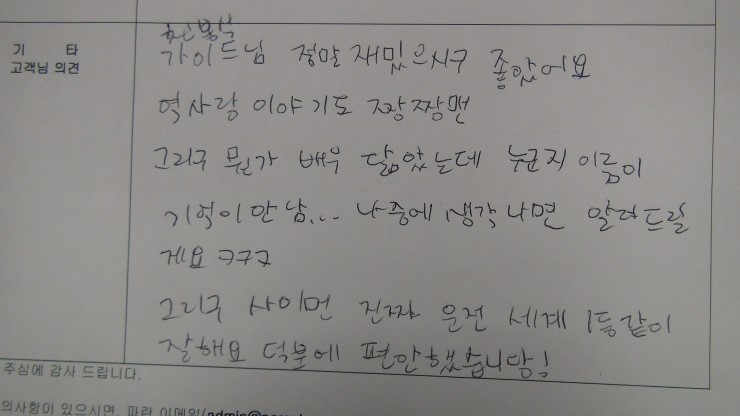 기 타
고객님 의견
가이드님 정말 재밌으시구 좋았어요
역사랑 이야기도 짱짱맨
그리구 뭔가 배우 닮았는데 누군지 이름이
기억이 안남... 나중에 생각나면 알려드릴
게요 ㅋㅋㅋ
그리구 사이먼 진짜 운전 세계 1등같이
잘해요 덕분에 편안했습니당!
주심에 감사 드립니다.
의사항이 있으시면, 파란 이메일(admin@